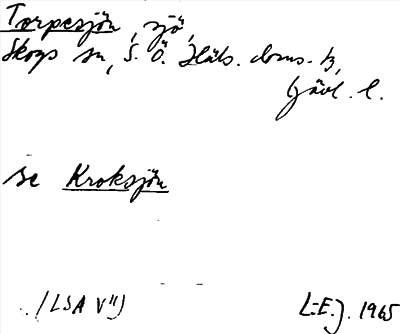 Torpesjön, sjö,
Skogs sn, S. Ö. Häls. doms. h,
Gävl. l.
se Kroksjön
(LSA V")
L-E.J. 1965